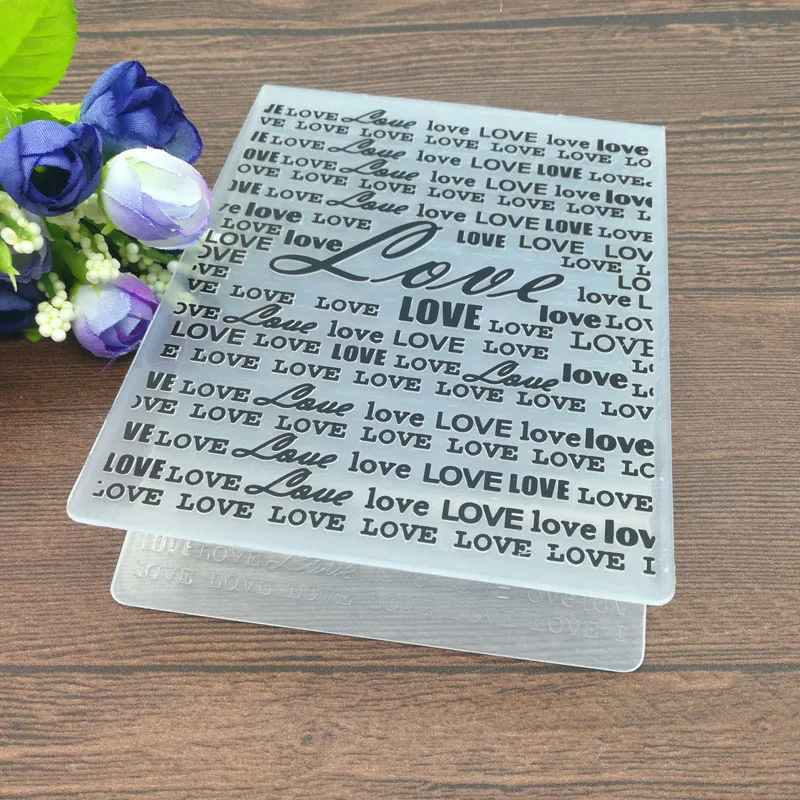 VE LOVE Love love LOVE love love
VE LOVE LOVE LOVE LOVE LOVE LO
OVE LOVE Love love LOVE LOVE love LOVE
LOVE LOVE LOVE LOVE LOVE LOVE
LOVE LOVE Love love LOVE LOVE LOVE LOVE
LOVE LOVE LOVE LOVE LOVE LOVE L
OVE LOVE Love love LOVE LOVE LOVE LOVE
love LOVE LOVE LOVE LOV
LOVE love Love LOVE L
OVE LO
LOVE love L
OVE LOVE LOVE LOVE LOVE love LOV
LOVE Love love LOVE LOVE LOVE
LOVE LOVE LOVE LOVE Love love L
LOVE LOVE LOVE LOVE LOVE LOVE LOV
VE LOVE Love love LOVE love love
OVE LOVE LOVE LOVE LOVE LOVE LOVE LO
VE LOVE Love love LOVE LOVE LOVE LOVE
LOVE LOVE Love love LOVE love lov
LOVE LOVE LOVE LOVE LOVE LOVE L
LOVE Love
LOVE LOVE LOVE LOVE LOVE LOVE